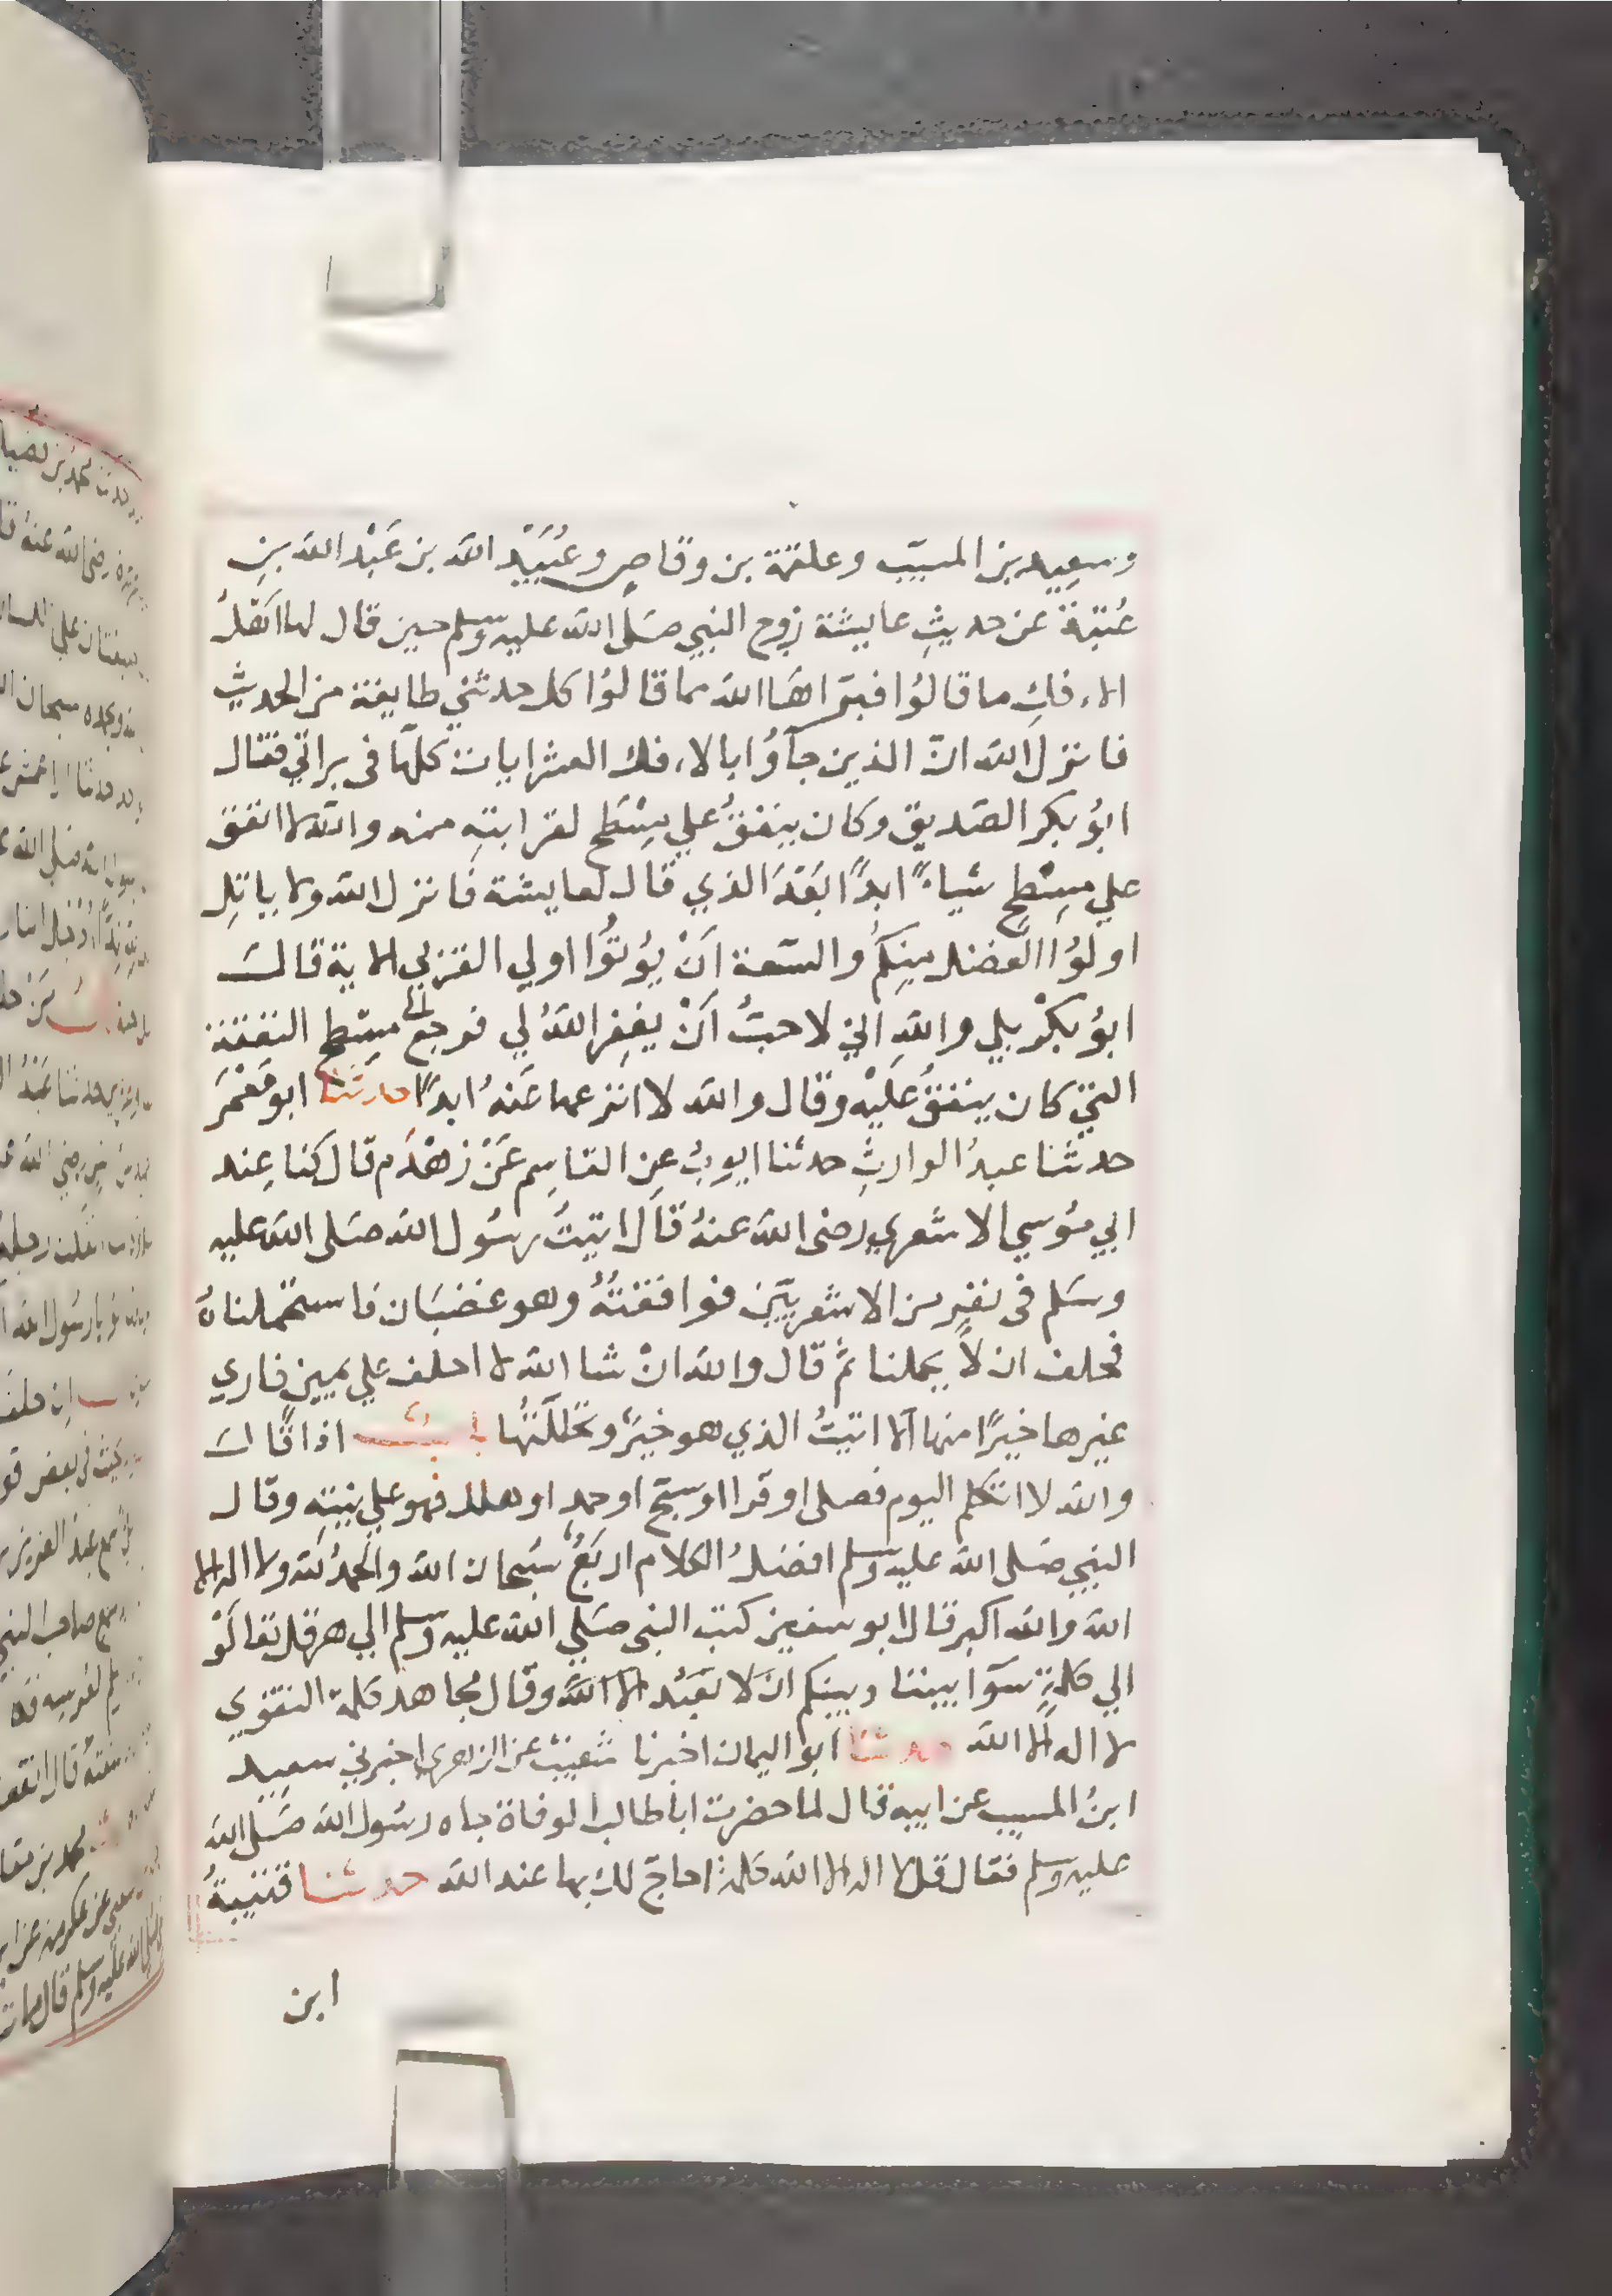 وسعيد بن المسيّب وعلقمة بن وقاصٍ وعُبَيْد الله بن عَبْد الله بنِ
عُتبَةَ عن حديثِ عايشة زوج النبي صَلى الله عليه وسلم حين قال لها اَهْلُ
الاءفكِ ما قالُوا فبرّاهَا الله مما قالوُا كل حدثني طايفة من الحديث
فانزل الله انّ الذين جآوُا بالاءفك العشر ايات كلّها فى براتي فقال
ابوُ بكر الصّديق وكان ينفقُ علي مِسْطَح لقرابتهِ منه والله لا انفق
علي مِسْطحٍ شياءً ابداً بَعْدَ الذي قال لعايشة فانزل الله ولا ياتلِ
اولُوا الفضل مِنكُم والسّعة اَنْ يُوتُوا اولي القربي الاية قال
ابوُ بكْرٍ بلي واللهِ اني لاحبُّ اَنْ يغفِر اللهُ لي فرجع الي مِسْطح النفقة
التي كان ينفقُ عَلَيْه وقال والله لا انزعها عَنهُ ابداً حدثنا ابو مَعْمَر
حدثنا عبدُ الوارثِ حدثنا ايوبُ عن القاسِم عَنْ زهْدَم قال كنا عِند
ابي مُوسي الاشعري رضى الله عنهُ قال اتيتُ رسُول الله صَلى الله عليه
وسَلم فى نفرٍ من الاشعريّين فوافقتُهُ وهو غضبَان فاستحملناهُ
فحلف ان لاَ يحملنا ثم قال والله انْ شا الله لا احلف علي يمينٍ فاري
غيرها خيرًا منها الا اتيتُ الذي هو خيرٌ وتحللتُها باب اذا قال
والله لا اتكلم اليوم فصلى او قرا او سبّح او حمد او هلل فهو علي نيتهِ وقال
النبي صَلى الله عليه وسلم افضلُ الكلام اربَعٌ سُبحان الله والحمدُ لله ولا اله الا
الله والله اكبر قال ابو سفين كتب النبى صَلي الله عليه وسلم الي هرقل تعالَوْ
الي كلمةٍ سَوآ بيننا وبينكم ان لا نعبُد الا الله وقال مجاهد كلمة التقوي
لا اله الا الله حدثنا ابو اليمان اخبرنا شعيبٌ عن الزهري اخبرني سعيد
ابنُ المسيب عن ابيه قال لما حضرت ابا طالب الوفاة جاه رسُول الله صَلى الله
عليه وسلم فقال قل لا اله الا الله كلمةً احاجّ لك بها عند الله حدثنا قتيبةُ
ابن